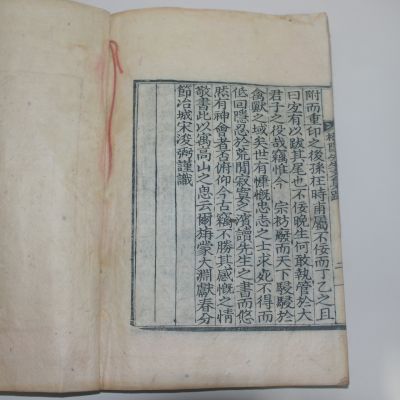 附而重印之後孫枉時甫屬不佞而丁乙之且
曰容有以跋其尾也不佞晚生何敢執管於大
君子之役哉竊惟今 宗祊廢而天下駸駸於
禽獸之域矣世有慷慨忠志之士求死不得而
低回隱忍於荒閒寂寞之濱讀先生之書而悠
然有神會者否俯仰今古竊不勝其感慨之情
敬書此以寓高山之思云爾旃蒙大淵獻春分
節冶城宋浚弼謹識